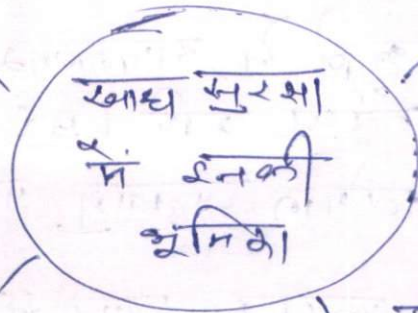 खाद्य सुरक्षा
में इनकी
भूमिका